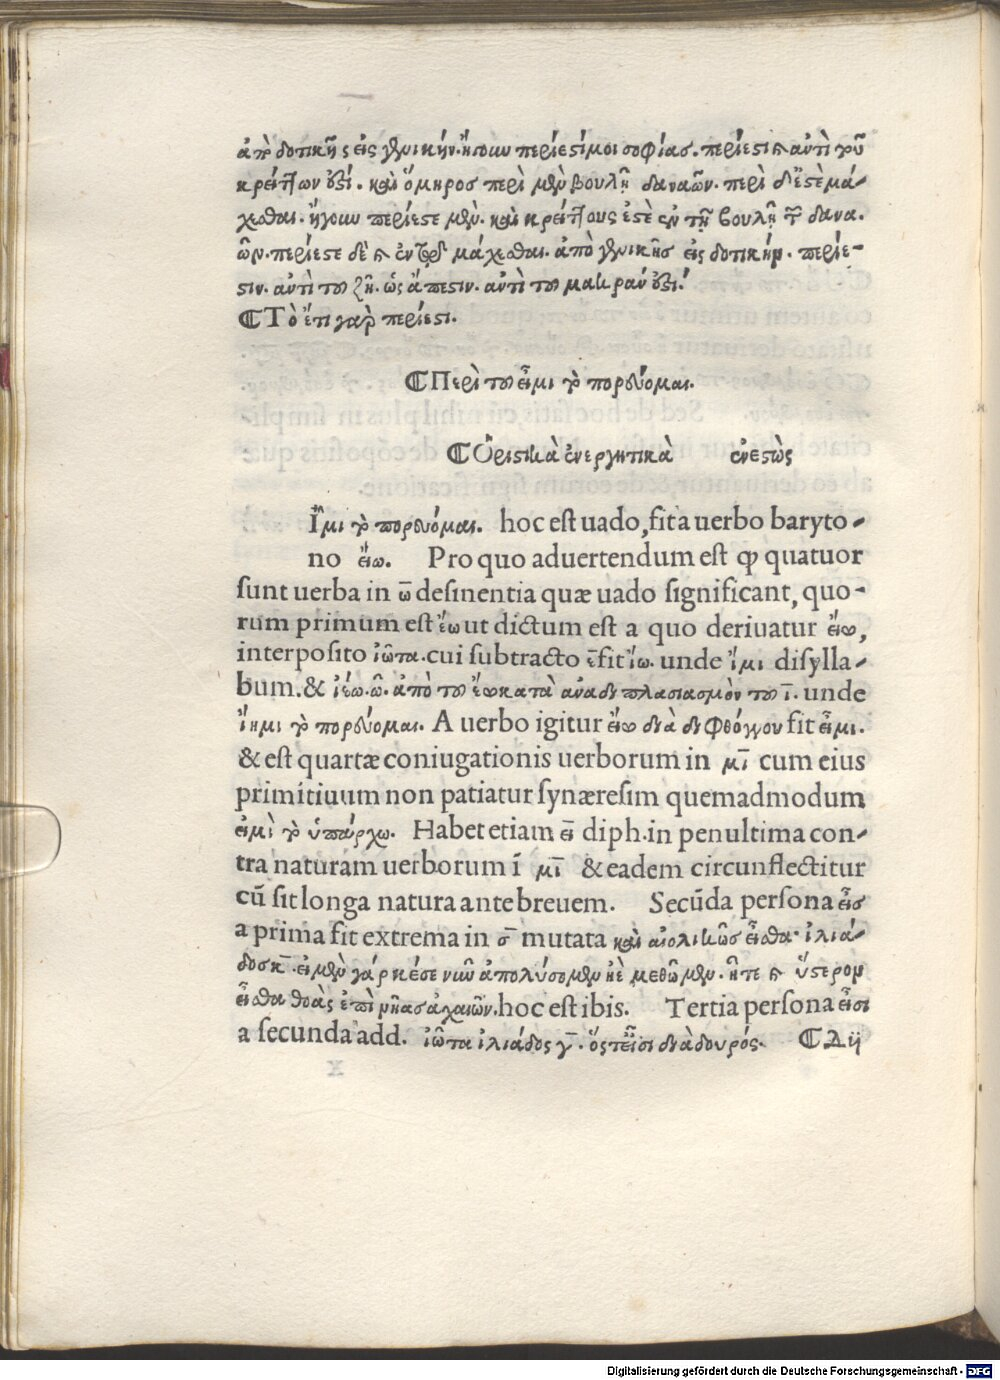 ἀπὸ δοτικῆς εἰς γενικήν. ἤγουν περίεσί μοι σοφίας. περίεστι καὶ ἀντὶ τοῦ
κρείττων ἐστί. καὶ ὅμηρος περὶ μὲν βουλῇ δαναῶν. περὶ δ' ἔστὲ μά-
χεσθαι. ἤγουν περίεστε μὲν. καὶ κρείττους ἐστὲ ἐν τῇ βουλῇ τῶν δανα.
ῶν. περίεστε δὲ καὶ ἐν τῷ μάχεσθαι. ἀπὸ γενικῆς εἰς δοτικήν. περίε-
στιν. ἀντὶ τοῦ ζῆ. ὡς ἄπεστιν. ἀντὶ τοῦ μακρὰν ἐστί.
ℂΤὸ ἔτι γὰρ περίεστι.
ℂΠερὶ τοῦ εἶμι τὸ πορεύομαι.
ℂΟριστικὰ ἐνεργητικὰ ἐνεστὼς
Εἶμι τὸ πορεύομαι. hoc est uado, fit a uerbo baryto-
no εἴω. Pro quo aduertendum est ꝙ quatuor
sunt uerba in ω̄ desinentia quæ uado significant, quo-
rum primum est ἕω ut dictum est a quo deriuatur εἴω,
interposito ἰῶτα. cui subtracto ε̄ fit ἴω. unde ἴμι disylla-
bum. & ἱέω. ῶ. ἀπὸ τοῦ ἕω κατὰ ἀναδιπλασιασμὸν τοῦ ῑ. unde
ἵημι τὸ πορεύομαι. A uerbo igitur εἴω διὰ διφθόγγου fit εἶμι.
& est quartæ coniugationis uerborum in μῑ cum eius
primitiuum non patiatur synæresim quemadmodum
εἰμὶ τὸ ὑπάρχω. Habet etiam εῑ diph. in penultima con-
tra naturam uerborum ī μῑ & eadem circunflectitur
cū sit longa natura ante breuem. Secūda persona εἶς
a prima fit extrema in σ̄ mutata καὶ αἰολικῶς εἶσθα. ἰλιά-
δος κ̄. εἰ μὲν γάρ κέ σε νῦν ἀπολύσομεν ἠὲ μεθῶμεν. ἦ τε καὶ ὕστερον
εἶσθα θοὰς ἐπὶ νῆας ἀχαιῶν. hoc est ibis. Tertia persona εἶσι
a secunda add. ἰῶτα ἰλιάδος γ̄. ὅς τ' εἶσι διὰ δουρός. ℂΔῡϊ
Digitalisierung gefördert durch die Deutsche Forschungsgemeinschaft - DFG